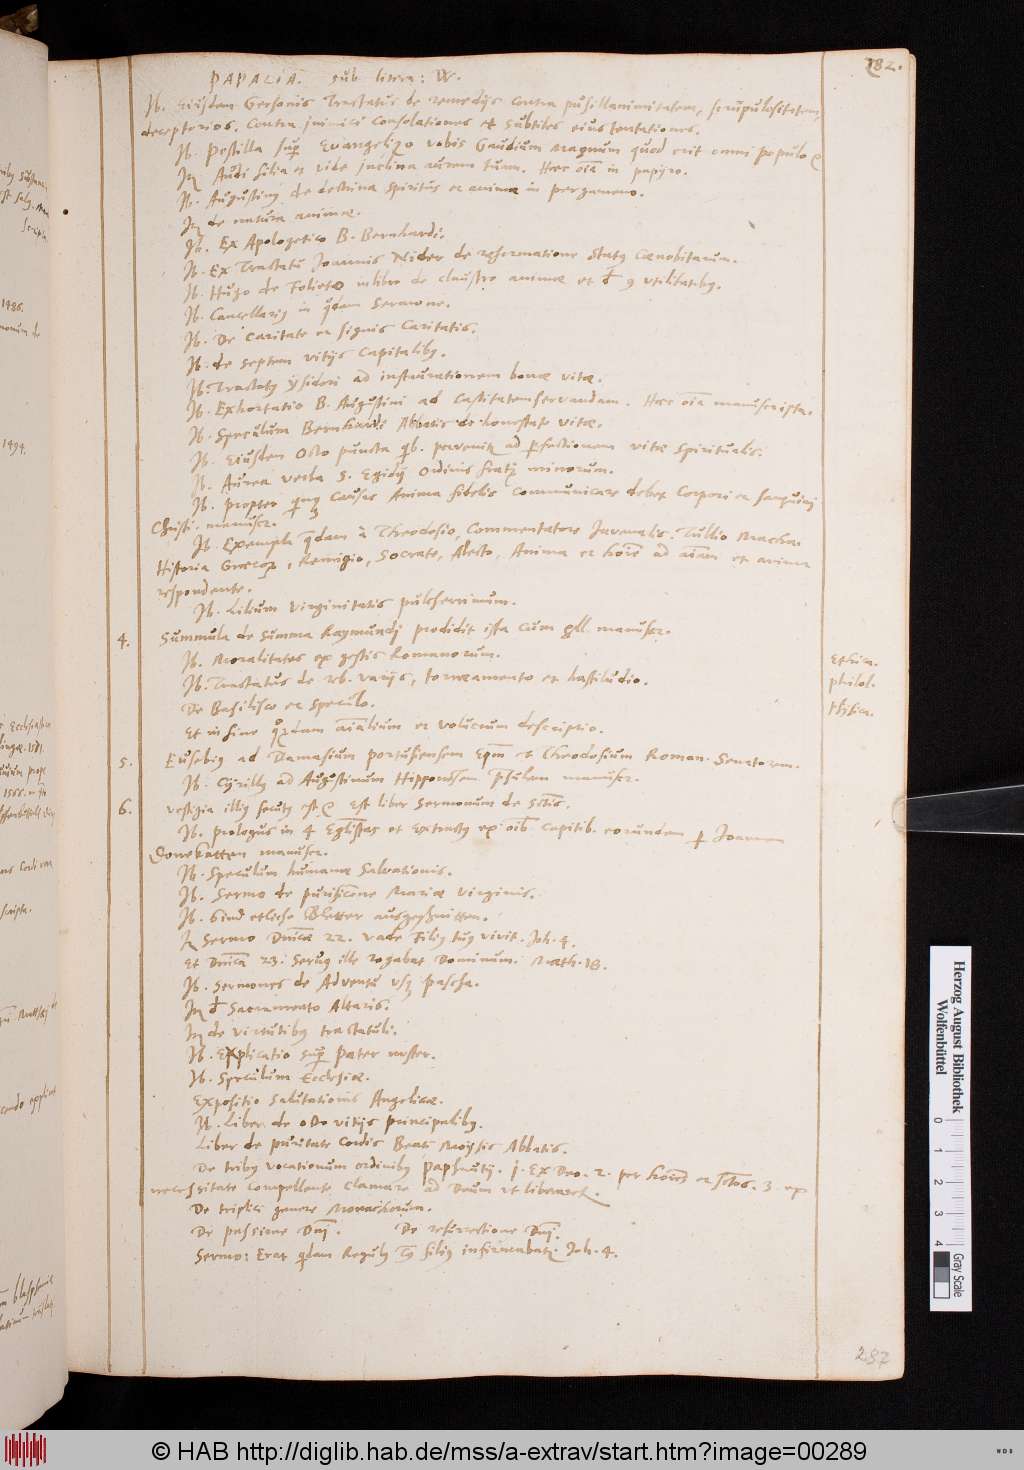 182.
PAPALIA. sub litera: W.
Ib. Eiusdem Gersonis Tractatus de remedijs contra pusillanimitatem, scrupulositatem,
deceptorios. Contra inimici Consolationes et subtiles eius tentationes.
Ib. Postilla sup Evangelizo vobis Gaudium magnum quod erit omni populo
It Audi filia et vide inclina aurem tuam. Haec oia in papyro.
Ib. Augustinus de doctrina spiritus et animae in pergameno.
It de natura animae.
Ib. Ex Apologetico B. Bernhardi.
Ib. Ex Tractatu Joannis Nider de reformatione status Caenobitarum.
Ib. Hugo de Folieto in libro de claustro animae et d 9 utilitatibus.
Ib. Cancellarius in qdam Sermone.
Ib. De Caritate et signis Caritatis.
Ib. de septem vitijs Capitalibus.
Ib. Tractatus ysidori ad instaurationem bonae vitae.
Ib. Exhortatio B. Augustini ad Castitatem servandam. Haec oia manuscripta.
Ib. Speculum Bernhardi Abbatis de honestate vitae.
Ib. Eiusdem Octo puncta qib. pervenitur ad pfectionem vitae Spiritualis.
Ib. Aurea verba S. Egidij Ordinis fratrum minorum.
Ib. propter quas Causas Anima fidelis communicare debet Corpori et sanguini
Christi. manuscr.
Ib. Exempla quaedam à Theodosio, Commentatore Juvenalis. Tullio
Historia Graecor, Remigio, Socrate, Alecto, Anima et hoie ad aiam et anima
respondente.
Ib. Lilium Virginitatis pulcherrimum.
4. Summula de Summa Raymundj prodidit ista cum gll. manuscr.
Ib. Moralitates ex gestis Romanorum.
Ib. Tractatus de rb. varijs, torneamento et hastiludio.
De Basilisco et speculo.
Et in fine quordam aialium et volucrum descriptio.
Ethica.
philol.
Phisica.
5. Eusebius ad Damasium portuensem Epm et Theodosium Roman. Senatorem.
Ib. Cyrillus ad Augustinum Hipponensem Psulem manuscr.
6. Vestigia illius secutus est Est liber Sermonum de Sctis.
Ib. prologus in 4 Eglistas et Extractus ex oib. capitib. eorundem p Joannem
Donekatten manuscr.
Ib. Speculum humanae Salvationis.
Ib. Sermo de purificone Mariae Virginis.
Ib. Sind etliche Bletter ausgeschnitten.
It Sermo Dnica 22. Vade Filius tuus vivit. Joh. 4.
Et Dnica 23. Servus ille rogabat Dominum. Math. 18.
Ib. Sermones de Adventu usque Pascha.
It d Sacramento Altaris.
It de virtutibus tractatuli.
Ib. Explicatio sup Pater noster.
Ib. Speculum Ecclesiae.
Expositio Salutationis Angelicae.
Ib. Liber de octo vitijs principalibus.
Liber de puritate Cordis Beati Moysis Abbatis.
De tribus vocationum ordinibus Paphnutij. 1. Ex Deo. 2. per hoies et sctos. 3. ex
necessitate compellente clamare ad Deum ut liberaret.
De triplici genere Monachorum.
De passione Dnj. De resurrectione Dnj.
Sermo: Erat qdam Regulus Cuius filius infirmabatur. Joh. 4.
287
Herzog August Bibliothek
Wolfenbüttel
0 1 2 3 4
Gray Scale
© HAB http://diglib.hab.de/mss/a-extrav/start.htm?image=00289
WDB